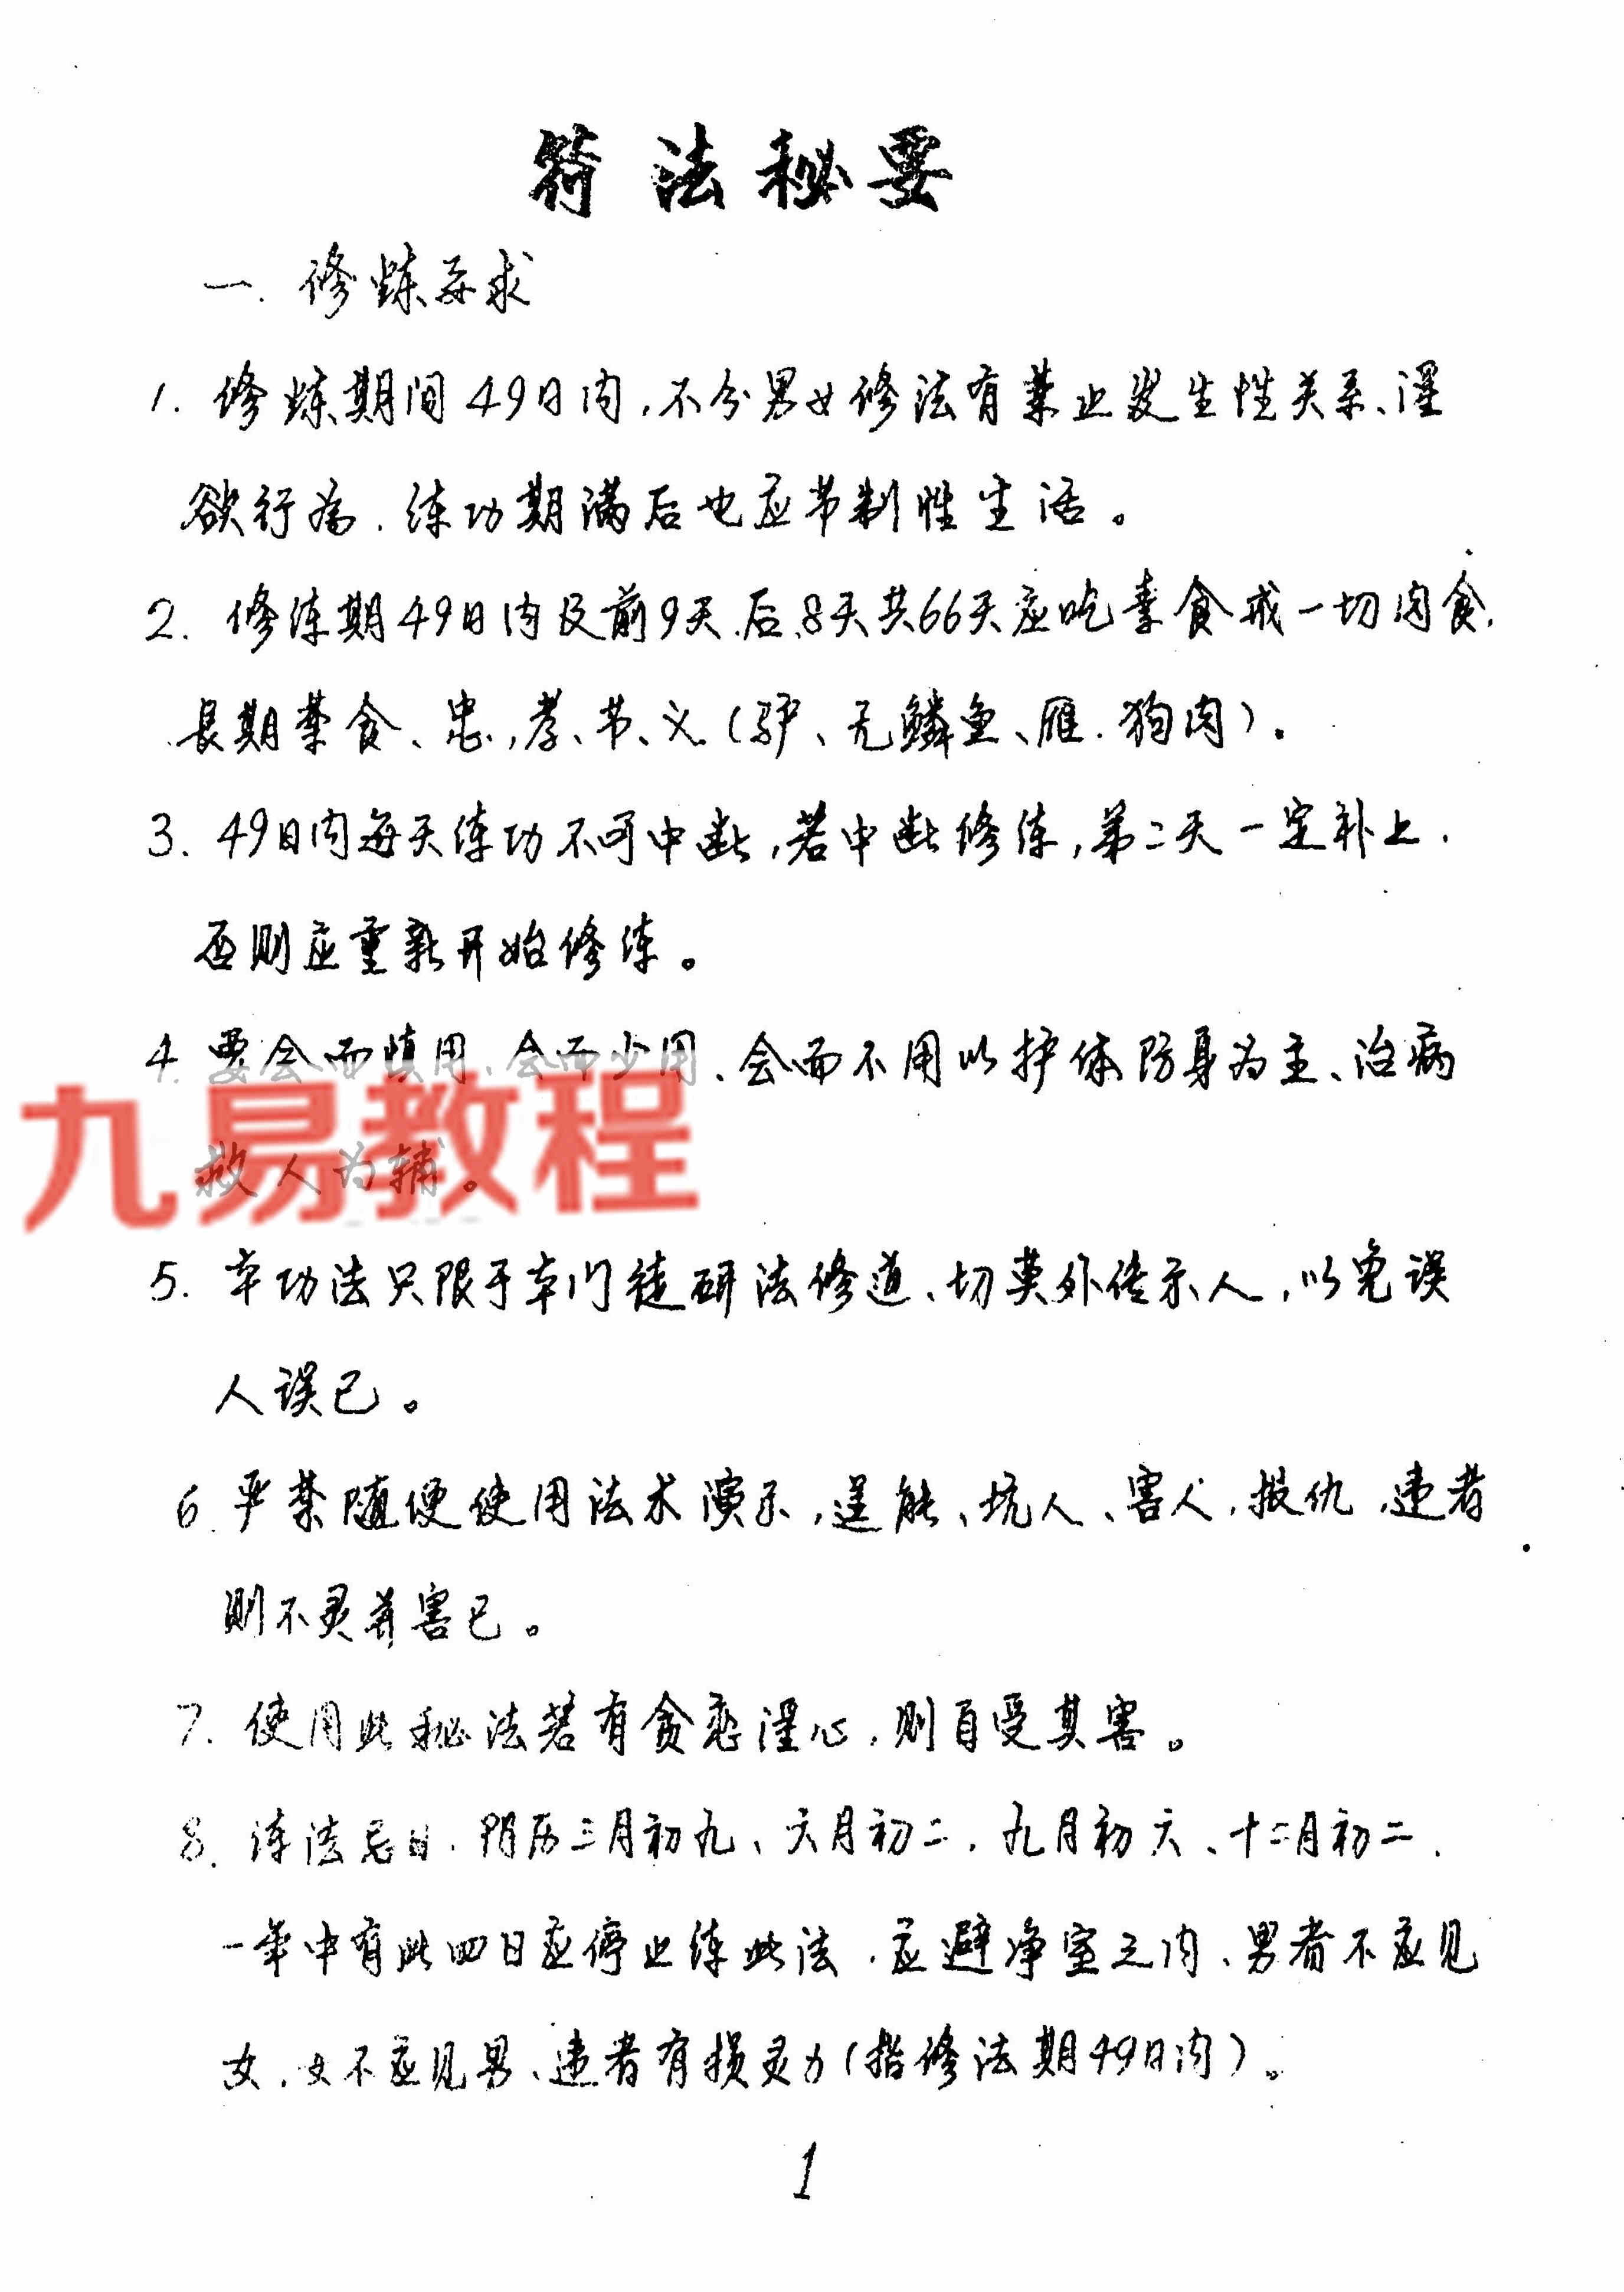 符法秘要
一. 修炼要求
1. 修炼期间49日内,不分男女修法有禁止发生性关系、淫
欲行为.练功期满后也应节制性生活。
2. 修炼期49日内及前9天.后8天共66天应吃素食戒一切肉食,
长期禁食、忠,孝、节、义(驴、无鳞鱼、雁.狗肉).
3. 49日内每天练功不可中断,若中断修练,第二天一定补上.
否则应重新开始修练。
4. 要会而慎用、会而少用、会而不用以护体防身为主、治病
救人为辅。
九易教程
5. 本功法只限于本门徒研法修道、切莫外传示人,以免误
人误己。
6. 严禁随便使用法术演示,逞能、坑人、害人,报仇,违者
则不灵并害己。
7. 使用此秘法若有贪恋淫心,则自受其害。
8. 练法忌日.阴历三月初九、六月初二.九月初六、十二月初二.
一年中有此四日应停止练此法.应避净室之内、男者不应见
女.女不应见男、违者有损灵力(指修法期49日内)。
1